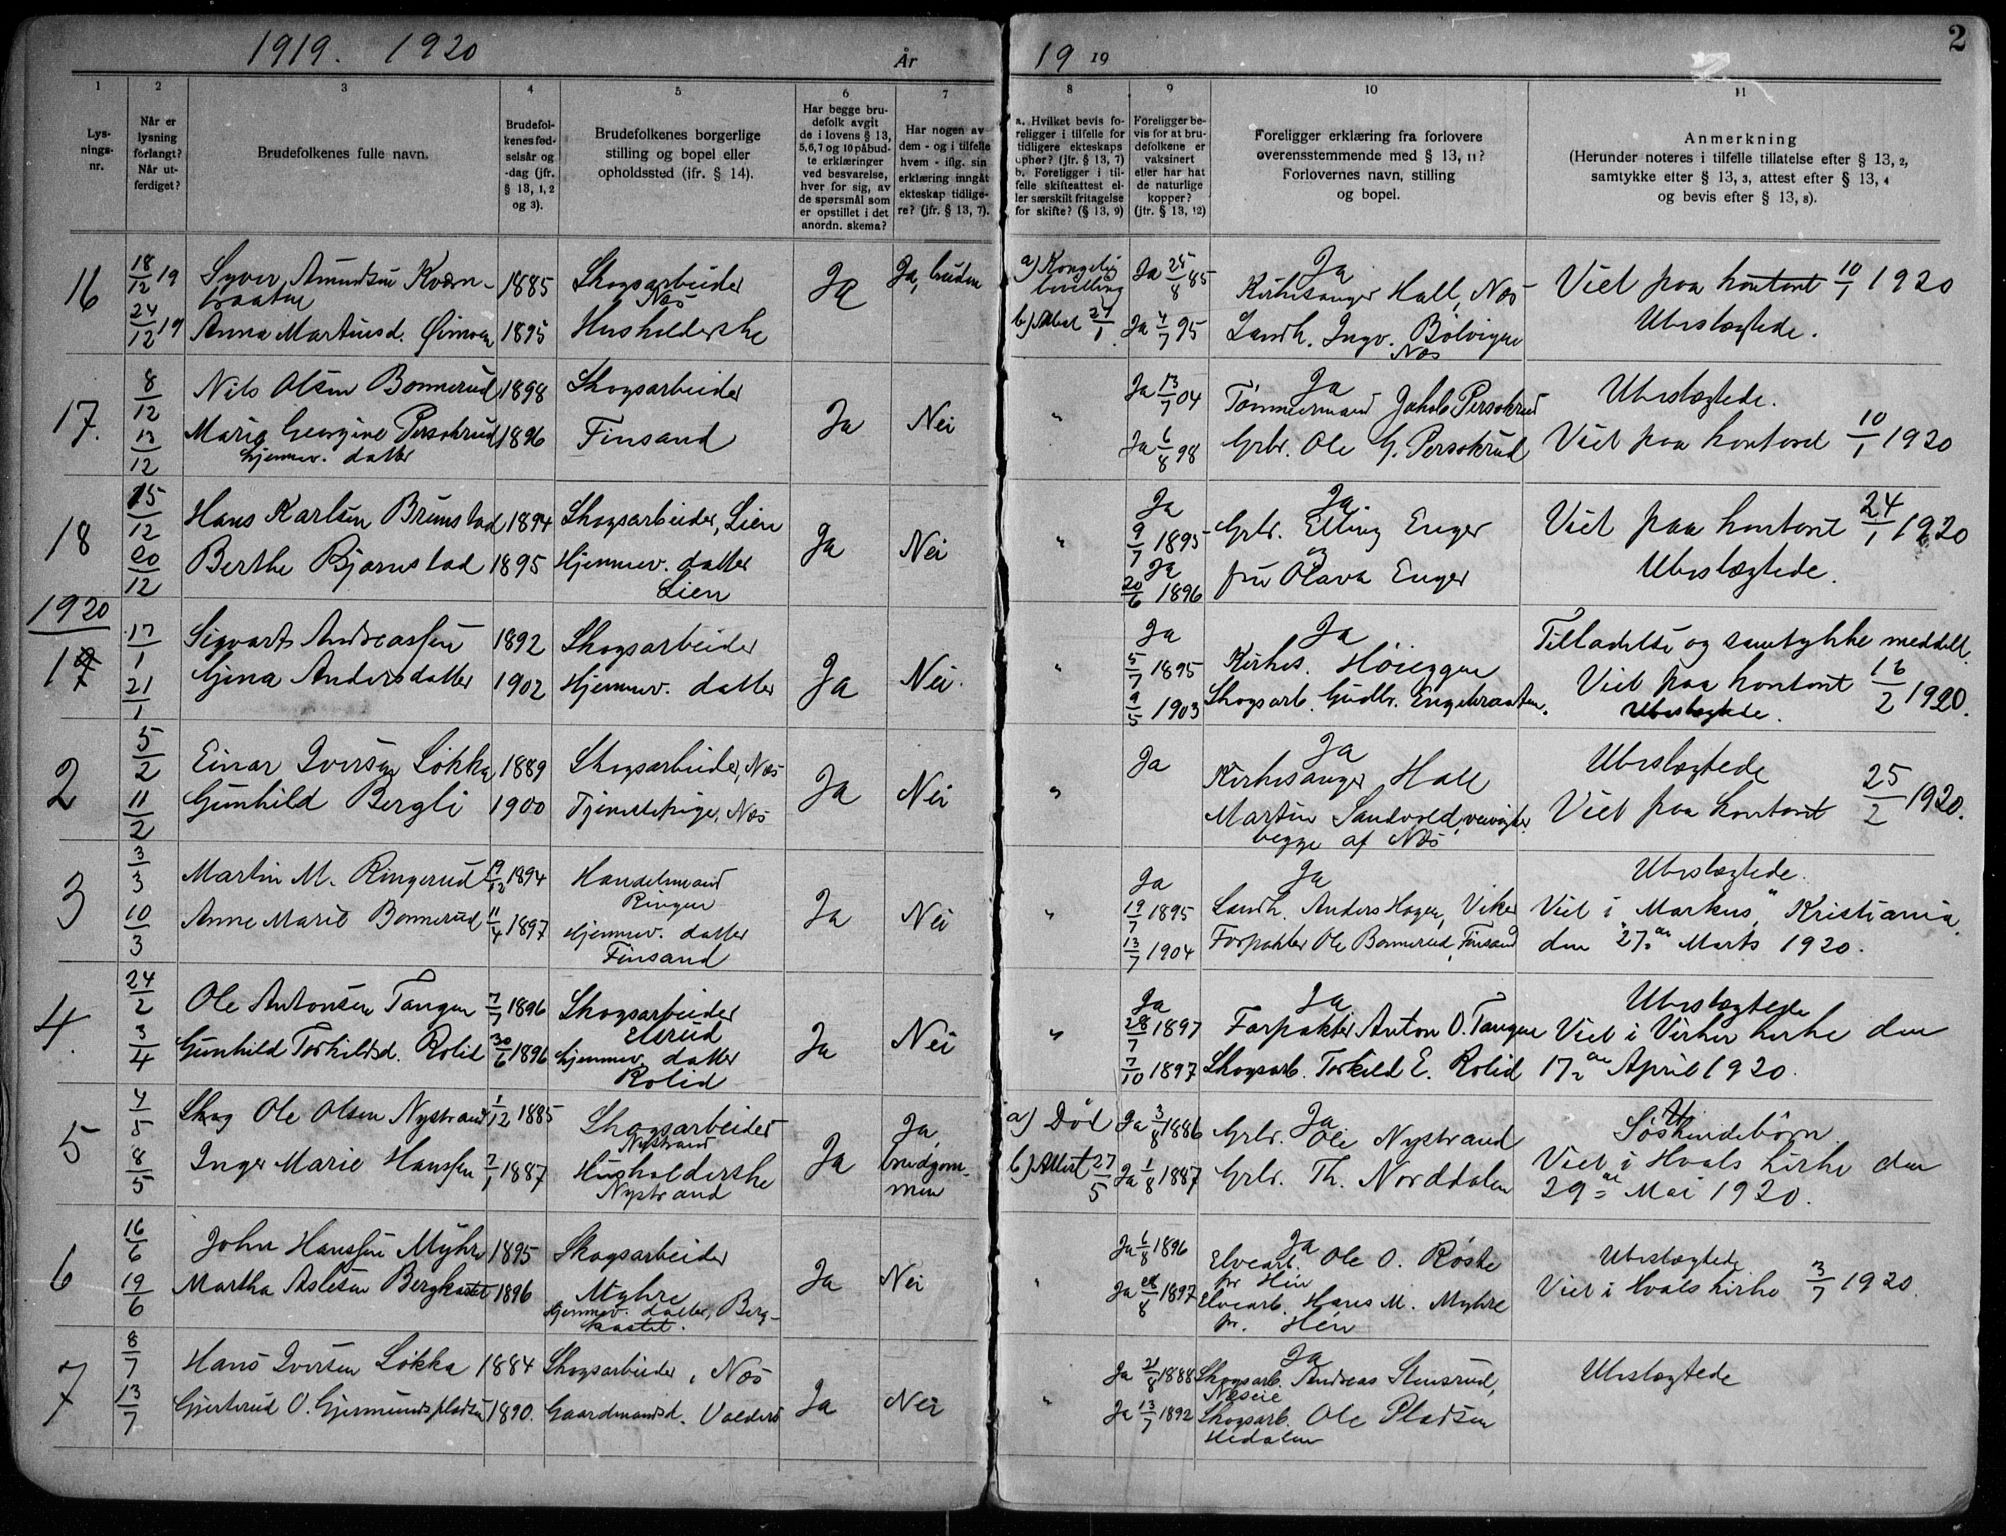 1919. 1920
År
19 19
2
1
2
3
4
5
6
7
8
9
10
11
Lys-
nings-
nr.
Når er
lysning
forlangt?
Når ut-
ferdiget?
Brudefolkenes fulle navn.
Brudefol-
kenes fød-
selsår og
-dag (jfr.
§ 13, 1, 2
og 3).
Brudefolkenes borgerlige
stilling og bopel eller
opholdssted (jfr. § 14).
Har begge bru-
defolk avgit
de i lovens § 13,
5, 6, 7 og 10 påbud-
te erklæringer
ved besvarelse,
hver for sig, av
de spørsmål som
er opstillet i det
anordn. skema?
Har nogen av
dem - og i tilfelle
hvem - iflg. sin
erklæring inngåt
ekteskap tidlige-
re? (jfr. § 13, 7).
a. Hvilket bevis fo-
religger i tilfelle for
tidligere ekteskaps
ophør? (jfr. § 13, 7)
b. Foreligger i til-
felle skifteattest el-
ler særskilt fritagelse
for skifte? (§ 13, 9)
Foreligger be-
vis for at bru-
defolkene er
vaksinert
eller har hat
de naturlige
kopper?
(jfr. § 13, 12)
Foreligger erklæring fra forlovere
overensstemmende med § 13, 11?
Forlovernes navn, stilling
og bopel.
Anmerkning
(Herunder noteres i tilfelle tillatelse efter § 13, 2,
samtykke efter § 13, 3, attest efter § 13, 4
og bevis efter § 13, 8).
16
18/12 19
24/12 19
Syver Amundsen Kværn-
braaten
Anna Martinsd. Øimoen
1885
1895
Skogsarbeider
Næs
Husholderske
Ja
Ja, bruden
a) Kongelig
bevilling
b) Attest 27/1
Ja 25/8 85
Ja 4/7 95
Ja
Kirkesanger Hall, Næs
Landh. Ingv. Bölvigen
Næs
Viet paa kontoret 10/1 1920
Ubeslægtede.
17.
8/12
13/12
Nils Olsen Bonnerud
Marie Georgine Persokrud
hjemmev. datter
1898
1896
Skogsarbeider
Finsand
Ja
Nei
"
Ja 13/7 04
Ja 6/8 98
Ja
Tømmermand Jakob Persokrud
Grbr. Ole G. Persokrud
Ubeslægtede.
Viet paa kontoret 10/1 1920
18
15/12
20/12
Hans Karlsen Brunstad
Berthe Bjørnstad
1894
1895
Skogsarbeider, Lien
Hjemmev. datter
Lien
Ja
Nei
"
Ja
9/7 1895
Ja
20/6 1896
Ja
Grbr. Elling Enger
og
fru Olava Enger
Viet paa kontoret 24/1 1920
Ubeslægtede.
1920
1
17/1
21/1
Sigvart Andreassen
Gina Andersdatter
1892
1902
Skogsarbeider
Hjemmev. datter
Ja
Nei.
"
Ja
5/7 1895
9/5 1903
Ja
Kirkes. Høieggen
Skogsarb. Gudbr. Engebraaten.
Tilladelse og samtykke meddelt.
Viet paa kontoret 16/2 1920.
Ubeslægtede.
2
5/2
11/2
Einar Iversen Løkka
Gunhild Bergli
1889
1900
Skogsarbeider, Næs
Tjenestepige, Næs
Ja
Nei
"
Ja
Ja
Kirkesanger Hall
Martin Sandvold, veivogter
begge af Næs
Ubeslægtede
Viet paa kontoret 25/2 1920.
3
3/3
10/3
Martin M. Ringerud
Anne Marie Bonnerud
19/12 1894
11/4 1897
Handelsmand
Ringen
Hjemmev. datter
Finsand
Ja
Nei
"
Ja
19/7 1895
13/7 1904
Ja
Landh. Anders Hagen, Viker
Forpakter Ole Bonnerud, Finsand
Ubeslægtede.
Viet i "Markus" Kristiania
den 27de Marts 1920.
4.
24/2
3/4
Ole Antonsen Tangen
Gunhild Torkildsd. Rolid
7/7 1896
30/6 1896
Skogsarbeider
Elsrud
hjemmev. datter
Rolid
Ja
Nei
"
Ja
28/7 1897
7/10 1897
Ja
Forpakter Anton O. Tangen
Skogsarb. Torkild E. Rolid
Ubeslægtede
Viet i Viker kirke den
17de April 1920.
5
4/5
8/5
Skog Ole Olsen Nystrand
Inger Marie Hanssen
1/12 1885
7/1 1887
Skogsarbeider
Nystrand
Husholderske
Nystrand
Ja
Ja,
brudgom-
men
a) Död
b) Attest 27/5
Ja 3/8 1886
Ja 1/8 1887
Ja
Grbr. Ole Nystrand
Grbr. Th. Norddalen
Søskendebørn
Viet i Hvals kirke den
29de Mai 1920.
6
16/6
19/6
John Hanssen Myhre
Martha Aslesen Bergkastet
1895
1896
Skogsarbeider
Myhre
Hjemmev. datter, Berg-
kastet.
Ja
Nei
"
Ja 6/8 1896
Ja 8 1897
Ja
Elvearb. Ole O. Røste
pr Hen
Elvearb. Hans M. Myhre
pr. Hen
Ubeslægtede
Viet i Hvals kirke 3/7 1920.
7
8/7
13/7
Hans Iversen Løkka
Gjertrud O. Gjermundspladsen
1884
1890.
Skogsarbeider, Næs
Gaardmandsd. Valders
Ja
Nei
"
Ja 21/8 1888
Ja 13/7 1892
Ja
Skogsarb. Andreas Stensrud,
Næseie
Skogsarb. Ole Pladsen
Hedalen
Ubeslægtede